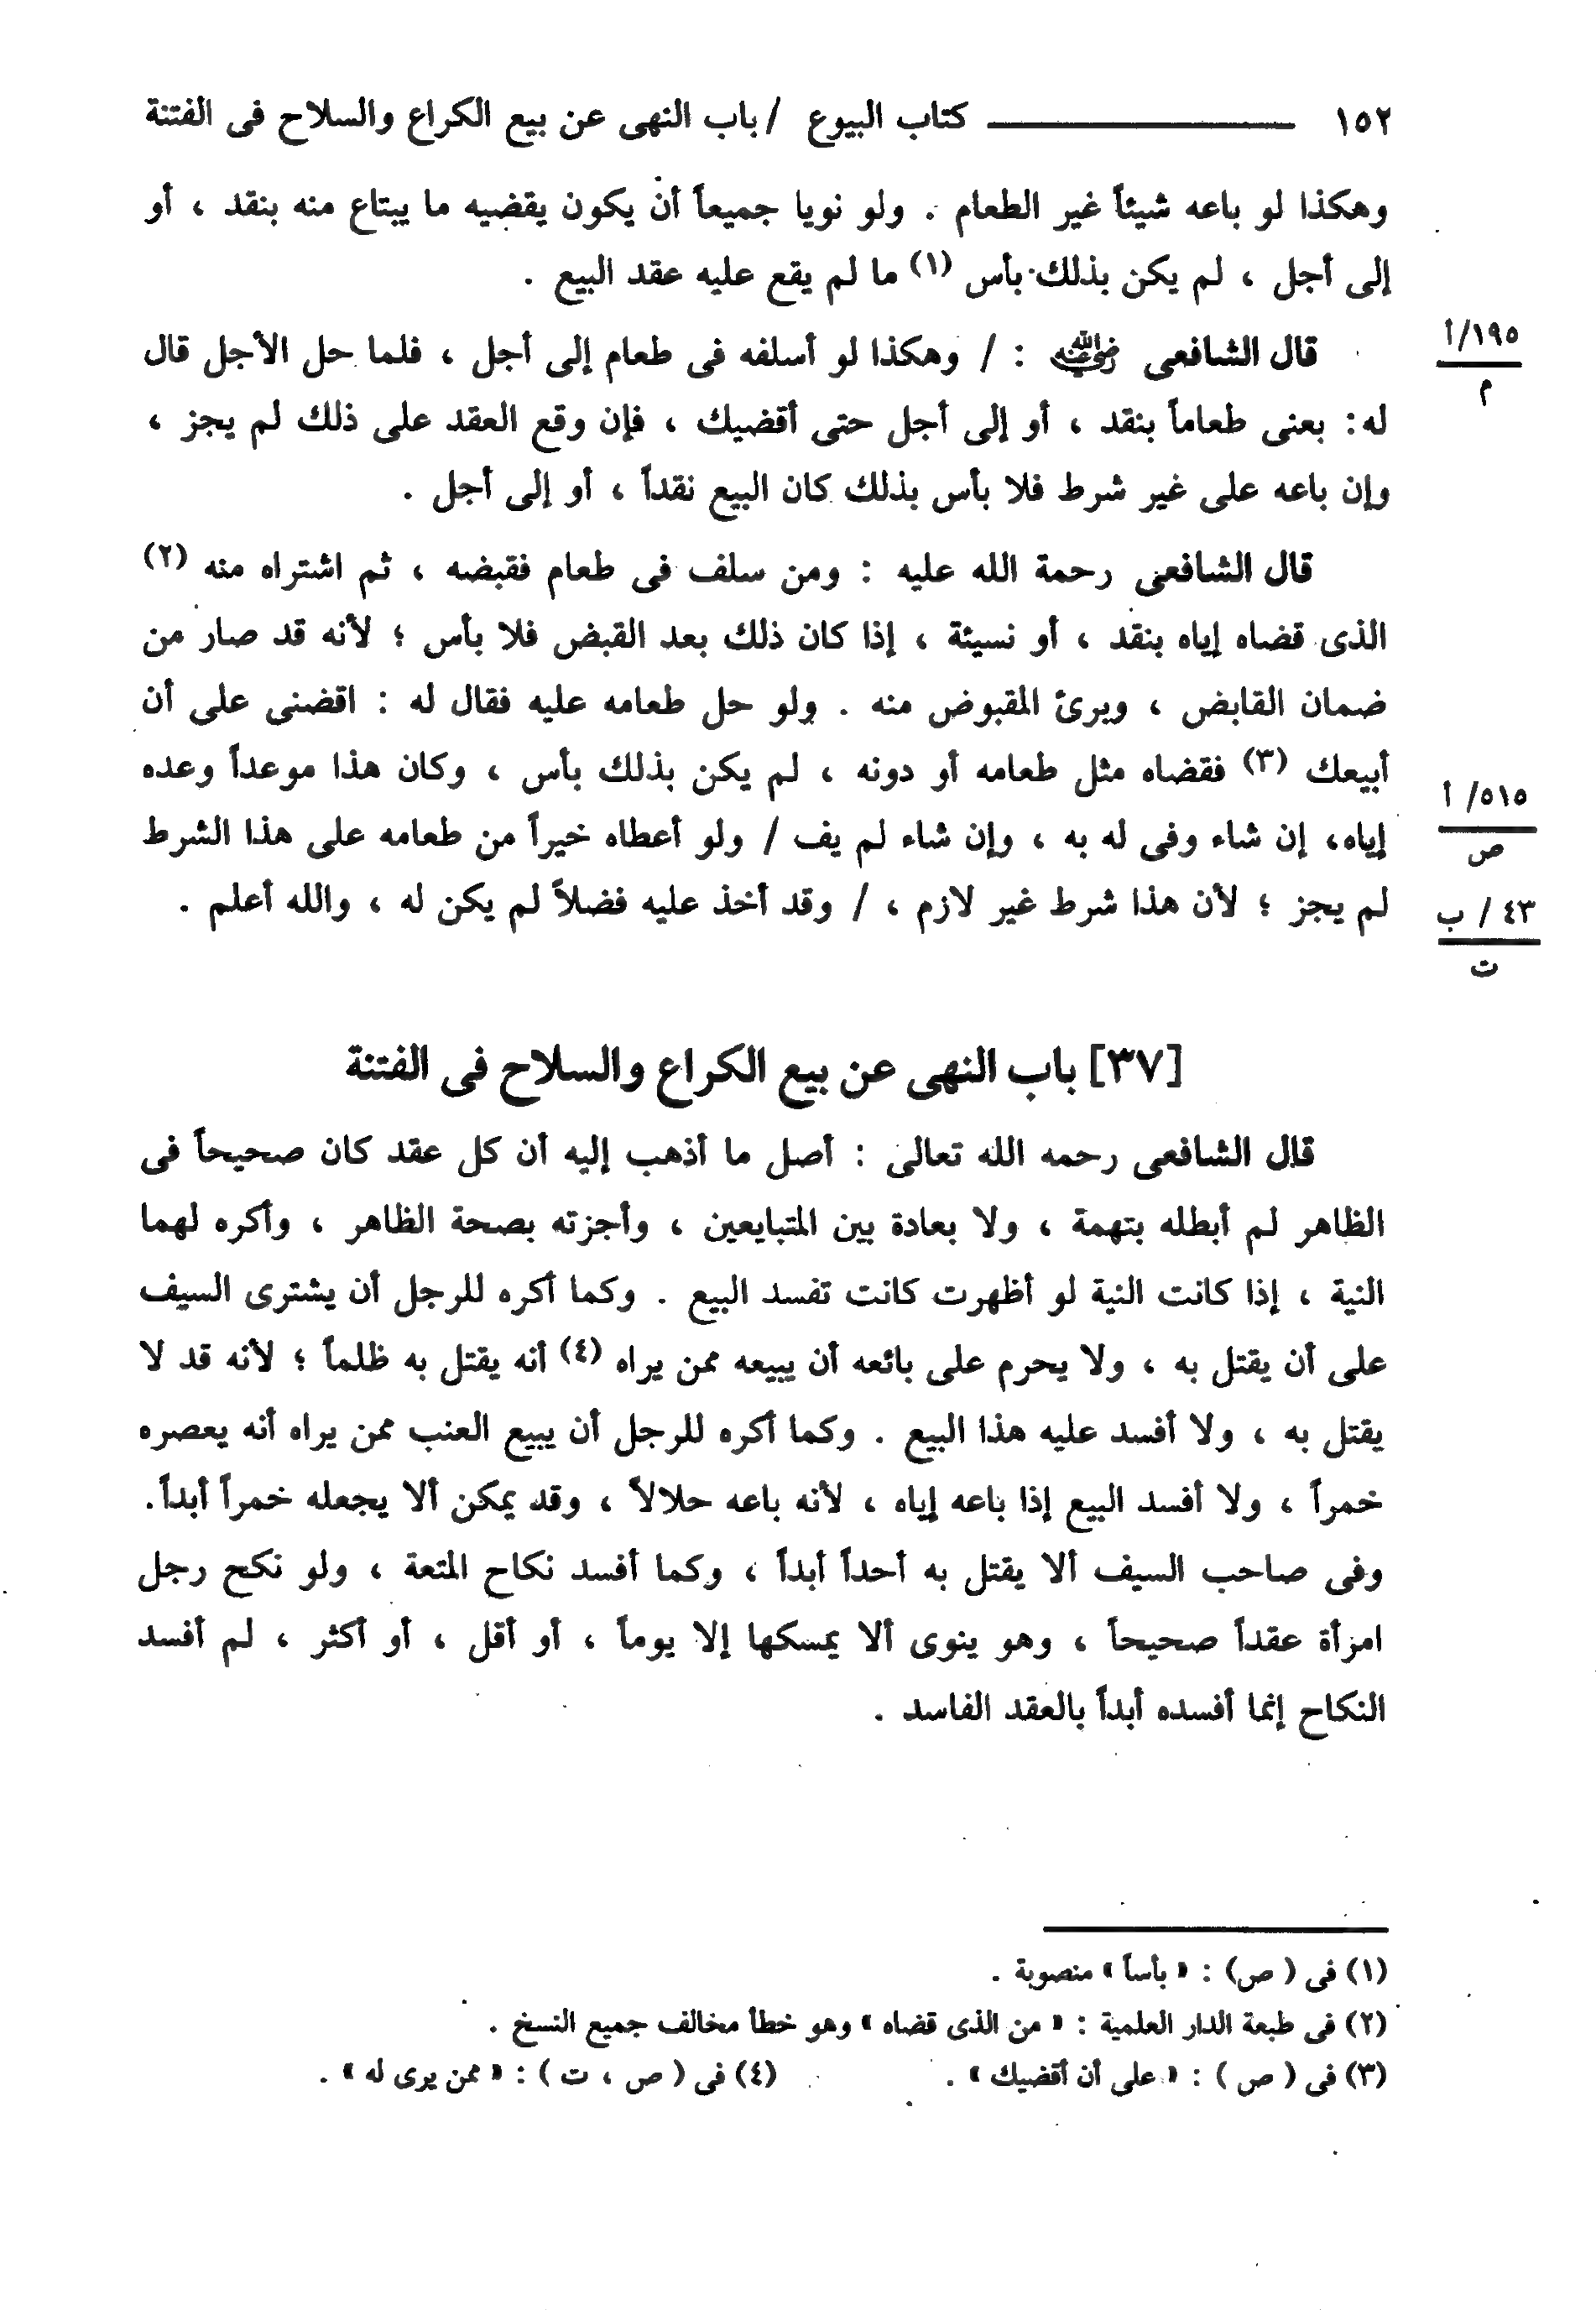 ١٥٢ كتاب البيوع / باب النهى عن بيع الكراع والسلاح فى الفتنة
وهكذا لو باعه شيئاً غير الطعام . ولو نويا جميعاً أن يكون يقضيه ما يبتاع منه بنقد ، أو
إلى أجل ، لم يكن بذلك بأس (١) ما لم يقع عليه عقد البيع .
١٩٥/أ
م
قال الشافعى رضي الله عنه : / وهكذا لو أسلفه فى طعام إلى أجل ، فلما حل الأجل قال
له : بعنى طعاماً بنقد ، أو إلى أجل حتى أقضيك ، فإن وقع العقد على ذلك لم يجز ،
وإن باعه على غير شرط فلا بأس بذلك كان البيع نقداً ، أو إلى أجل .
قال الشافعى رحمة الله عليه : ومن سلف فى طعام فقبضه ، ثم اشتراه منه (٢)
الذى قضاه إياه بنقد ، أو نسيئة ، إذا كان ذلك بعد القبض فلا بأس ؛ لأنه قد صار من
ضمان القابض ، وبرئ المقبوض منه . ولو حل طعامه عليه فقال له : اقضنى على أن
أبيعك (٣) فقضاه مثل طعامه أو دونه ، لم يكن بذلك بأس ، وكان هذا موعداً وعده
٥١٥/ أ
ص
إياه، إن شاء وفى له به ، وإن شاء لم يف / ولو أعطاه خيراً من طعامه على هذا الشرط
٤٣ / ب
ت
لم يجز ؛ لأن هذا شرط غير لازم ، / وقد أخذ عليه فضلاً لم يكن له ، والله أعلم .
[٣٧] باب النهى عن بيع الكراع والسلاح فى الفتنة
قال الشافعى رحمه الله تعالى : أصل ما أذهب إليه أن كل عقد كان صحيحاً فى
الظاهر لم أبطله بتهمة ، ولا بعادة بين المتبايعين ، وأجزته بصحة الظاهر ، وأكره لهما
النية ، إذا كانت النية لو أظهرت كانت تفسد البيع . وكما أكره للرجل أن يشترى السيف
على أن يقتل به ، ولا يحرم على بائعه أن يبيعه ممن يراه (٤) أنه يقتل به ظلماً ؛ لأنه قد لا
يقتل به ، ولا أفسد عليه هذا البيع . وكما أكره للرجل أن يبيع العنب ممن يراه أنه يعصره
خمراً ، ولا أفسد البيع إذا باعه إياه ، لأنه باعه حلالاً ، وقد يمكن ألا يجعله خمراً أبداً.
وفى صاحب السيف ألا يقتل به أحداً أبداً ، وكما أفسد نكاح المتعة ، ولو نكح رجل
امرأة عقداً صحيحاً ، وهو ينوى ألا يمسكها إلا يوماً ، أو أقل ، أو أكثر ، لم أفسد
النكاح إنما أفسده أبداً بالعقد الفاسد .
(١) فى ( ص) : « بأساً » منصوبة .
(٢) فى طبعة الدار العلمية : « من الذى قضاه » وهو خطأ مخالف جميع النسخ .
(٣) فى ( ص ) : « على أن أقضيك » . (٤) فى ( ص ، ت ) : « ممن يرى له » .